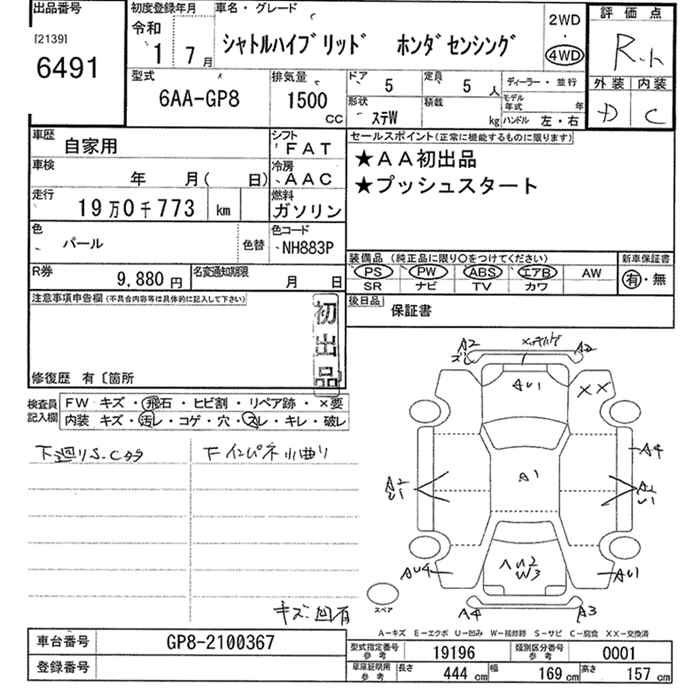 出品番号
[2139]
6491
初度登録年月
令和
1 7月
車名・グレード
シャトルハイブリッド ホンダセンシング
2WD
・
4WD
評価点
外装 内装
D C
型式
6AA-GP8
排気量
1500
CC
ドア
5
定員
5人
形状
ステW
積載
kg
ディーラー・並行
モデル年式 年
ハンドル 左・右
車歴
自家用
シフト
FAT
車検
年 月( 日)
冷房
AAC
走行
19万0千773 km
燃料
ガソリン
色
パール
色替
色コード
NH883P
R券
9,880円
名変通知期限
月 日
セールスポイント(正常に機能するものに限ります)
★AA初出品
★プッシュスタート
装備品 (純正品に限り○をつけてください)
PS PW ABS エアB AW
SR ナビ TV カワ
新車保証書
有・無
後日品
保証書
注意事項申告欄(不具合内容等は具体的に記入して下さい)
初出品
修復歴 有〔箇所
検査員記入欄
FW キズ・飛石・ヒビ割・リペア跡・×要
内装 キズ・汚レ・コゲ・穴・スレ・キレ・破レ
下廻りS.Cカラ
キズ.凹有
A2
A2
AU1
XX
A4
A1
A2
U1
A2
U1
AU4
AU1
W3
A4
A3
スペア
A-キズ E-エクボ U-凹み W-補修跡 S-サビ C-腐食 XX-交換済
車台番号
GP8-2100367
登録番号
型式指定番号
参考
19196
類別区分番号
参考
0001
車庫証明用
参考
長さ
444 cm
幅
169 cm
高さ
157 cm